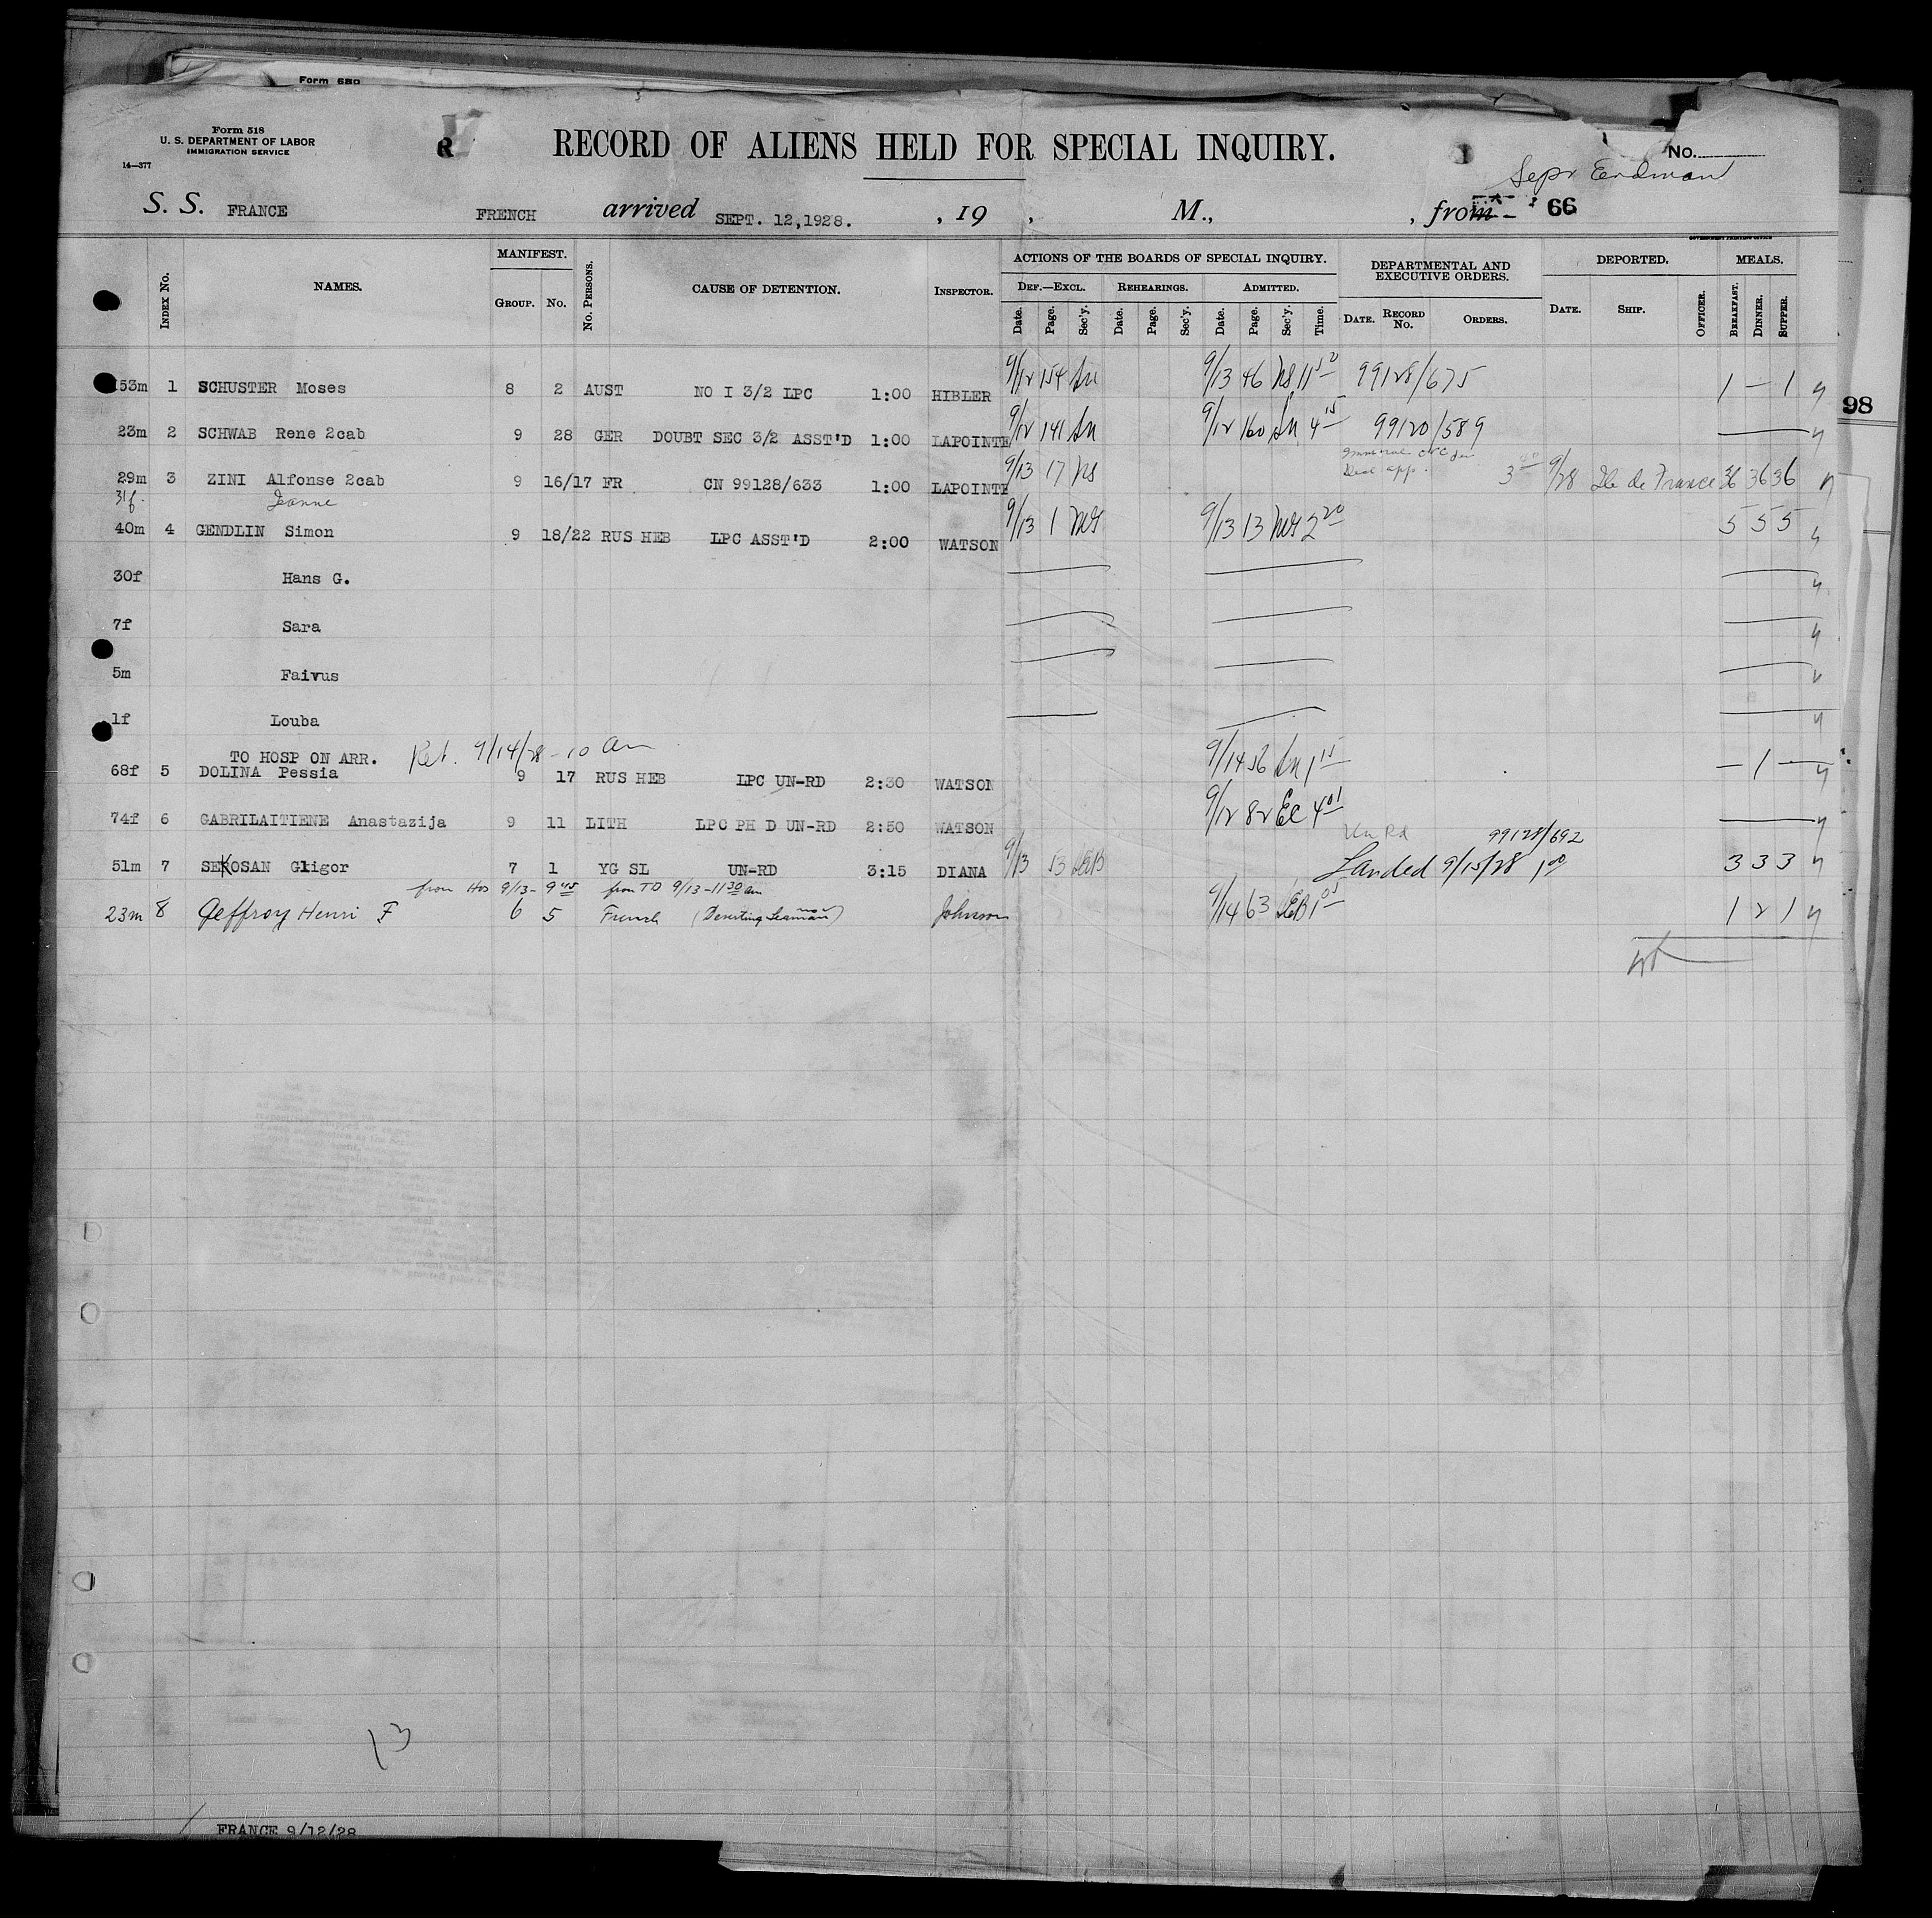 Form 680
Form 518
U. S. DEPARTMENT OF LABOR
IMMIGRATION SERVICE
14—377
RECORD OF ALIENS HELD FOR SPECIAL INQUIRY.
No.
Erdman
S. S. FRANCE FRENCH arrived SEPT. 12,1928. , 19 , M., , from 66
98
INDEX No. NAMES. MANIFEST. GROUP. No. No. PERSONS. CAUSE OF DETENTION. INSPECTOR. ACTIONS OF THE BOARDS OF SPECIAL INQUIRY. DEF.—EXCL. Date. Page. Sec'y. REHEARINGS. Date. Page. Sec'y. ADMITTED. Date. Page. Sec'y. Time. DEPARTMENTAL AND EXECUTIVE ORDERS. DATE. RECORD No. ORDERS. DEPORTED. DATE. SHIP. OFFICER. MEALS. BREAKFAST. DINNER. SUPPER.
GOVERNMENT PRINTING OFFICE
53m 1 SCHUSTER Moses 8 2 AUST NO I 3/2 LPC 1:00 HIBLER 9/12 154 9/13 46 99128/675 1 — 1
23m 2 SCHWAB Rene 2cab 9 28 GER DOUBT SEC 3/2 ASST'D 1:00 LAPOINTE 9/12 141 9/12 160 4 15 99120/589
29m 3 ZINI Alfonse 2cab 9 16/17 FR CN 99128/633 1:00 LAPOINTE 9/13 17 9/28 Ile de France 36 36 36
31f Jeanne
40m 4 GENDLIN Simon 9 18/22 RUS HEB LPC ASST'D 2:00 WATSON 9/13 1 9/13 13 2 20 5 5 5
30f Hans G.
7f Sara
5m Faivus
1f Louba
TO HOSP ON ARR. Ret. 9/14/28 - 10 am
68f 5 DOLINA Pessia 9 17 RUS HEB LPC UN-RD 2:30 WATSON 9/14 56 1 15 — 1 —
74f 6 GABRILAITIENE Anastazija 9 11 LITH LPC PH D UN-RD 2:50 WATSON 9/12 82 EC 4 01
Un Rd 99128/692
51m 7 SEKOSAN Gligor 7 1 YG SL UN-RD 3:15 DIANA 9/13 53 LEB Landed 9/15/28 1 00 3 3 3
from Hos 9/13 - 9 45 from TD 9/13 - 11 30 am
23m 8 Geffroy Henri F 6 5 French (Deserting Seaman) Johnson 9/14 63 LEB 1 05 1 2 1
13
FRANCE 9/12/28